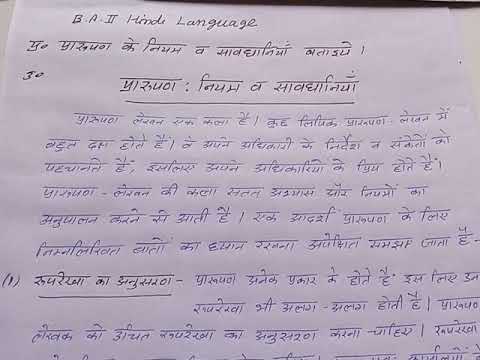 B.A.II Hindi Language
प्र० प्रारूपण के नियम व सावधानियाँ बताइये।
उ०
प्रारूपण : नियम व सावधानियाँ
प्रारूपण लेखन एक कला है। कुछ लिपिक प्रारूपण-लेखन में
बहुत दक्ष होते हैं। वे अपने अधिकारी के निर्देश व संकेतों को
पहचानते हैं, इसलिए अपने अधिकारियों के प्रिय होते हैं।
प्रारूपण-लेखन की कला सतत अभ्यास और नियमों का
अनुपालन करने से आती है। एक आदर्श प्रारूपण के लिए
निम्नलिखित बातों का ध्यान रखना अपेक्षित समझा जाता है-
(1) रूपरेखा का अनुसरण - प्रारूपण अनेक प्रकार के होते हैं इस लिए उन
रूपरेखा भी अलग-अलग होती है। प्रारूपण
लेखक को उचित रूपरेखा का अनुसरण करना चाहिए। रूपरेखा